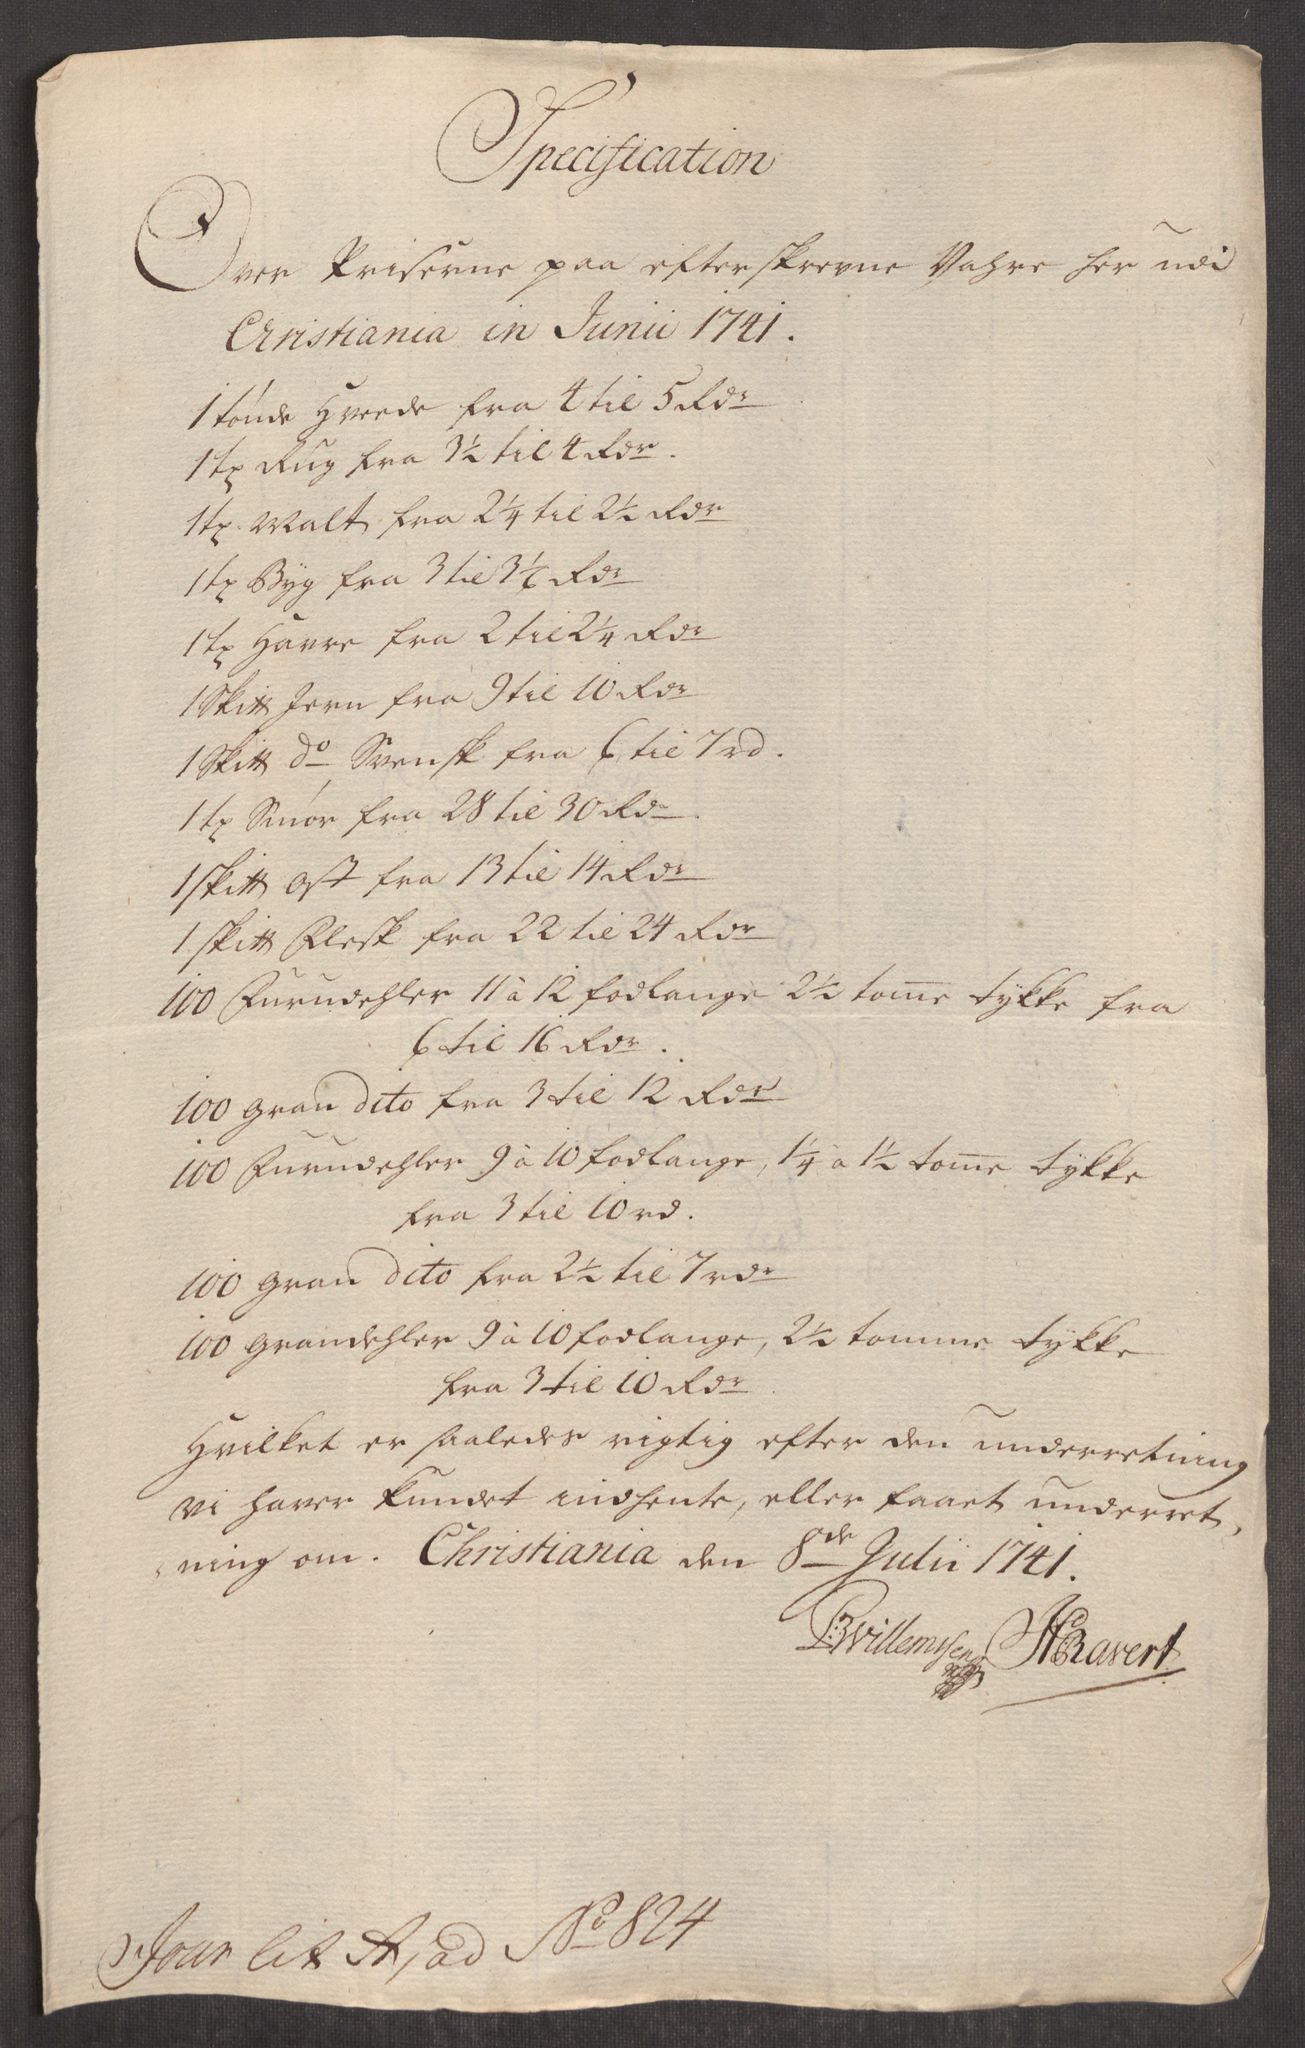 Specification
Over Priserne paa efterskrevne Vahre her udi
Christiania in Junii 1741.
1 tønde Hveede fra 4 til 5 Rdr
1 tr Rug fra 3½ til 4 Rdr.
1 tr Malt fra 2¼ til 2½ Rdr
1 tr Byg fra 3 til 3½ Rdr
1 tr Havre fra 2 til 2¼ Rdr
1 Skitt Jern fra 9 til 10 Rdr
1 Skitt do Svensk fra 6 til 7 rd.
1 tr Smør fra 28 til 30 Rdr.
1 skitt ost fra 13 til 14 Rdr
1 skitt Flesk fra 22 til 24 Rdr
100 Furudehler 11 à 12 fodlange 2½ tome tykke fra
6 til 16 Rdr.
100 gran dito fra 3 til 12 Rdr
100 Furudehler 9 à 10 fodlange, 1¼ a 1½ tome tykke
fra 3 til 10 rd.
100 gran dito fra 2½ til 7 rdr
100 grandehler 9 à 10 fodlange, 2½ tomme tykke
fra 3 til 10 Rdr
Hvilket er saaledes rigtig efter den underretning
vi haver kundet indhente, eller faaet underret,
ning om. Christiania den 8de Julii 1741.
Willemsen Ravert
Jour lit A, ad No 824